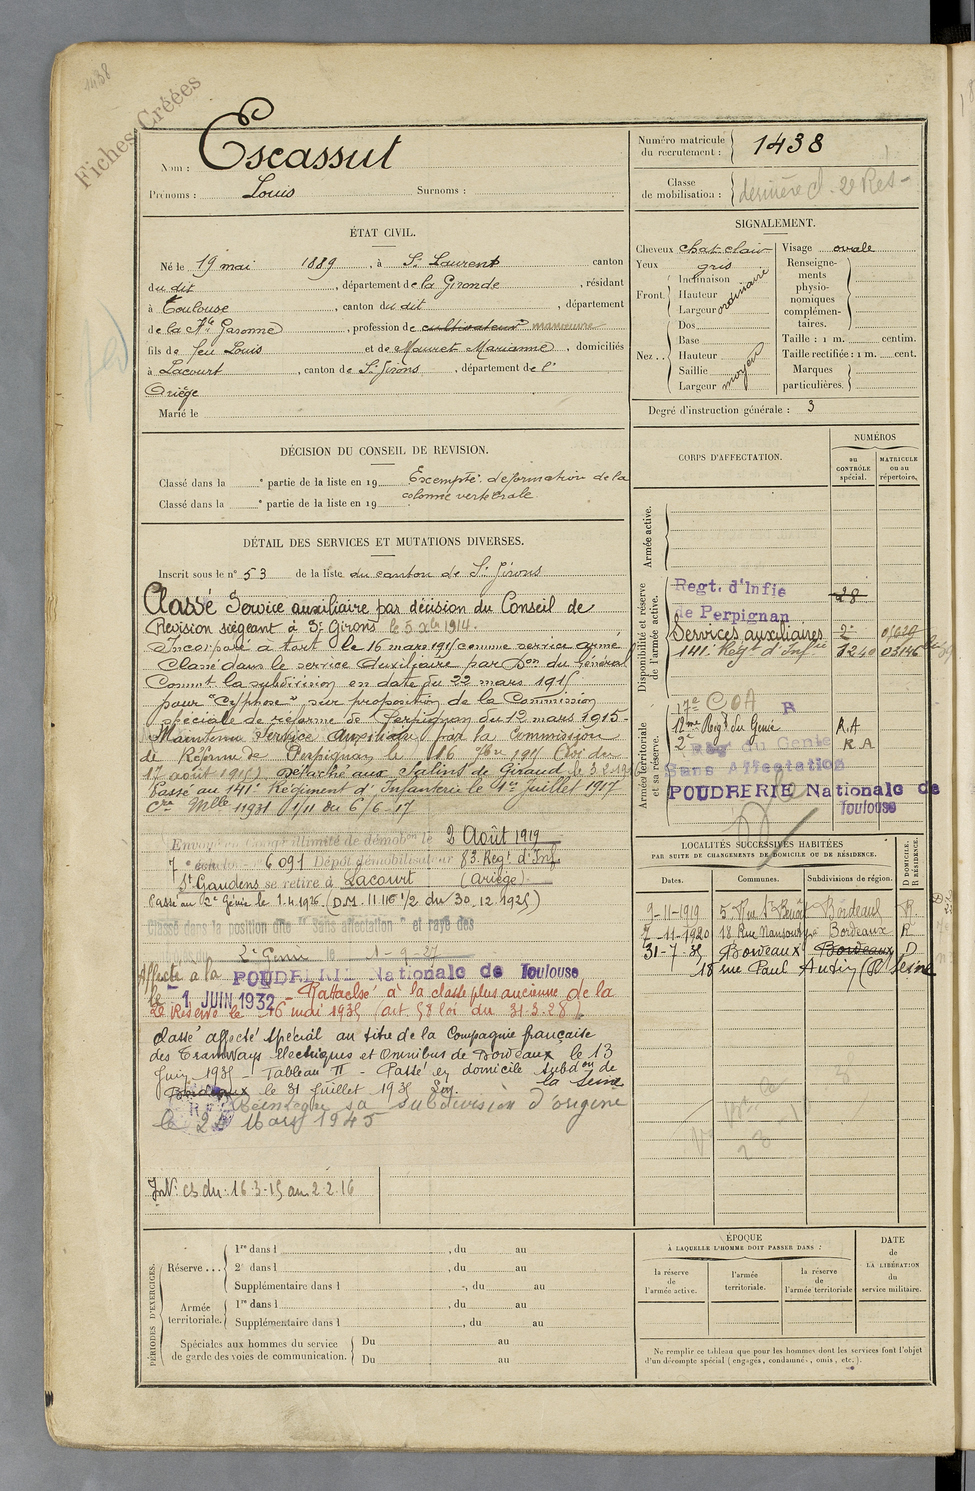 1438
Fiches Créées
Nom : Escassut
Prénoms : Louis Surnoms :
Numéro matricule
du recrutement : 1438
Classe
de mobilisation : dernière cl. 2e Res-
ÉTAT CIVIL.
Né le 19 mai 1889, à St Laurent canton
du dit, département de la Gironde, résidant
à Toulouse, canton du dit, département
de la Hte Garonne, profession de cultivateur manœuvre
fils de feu Louis et de Mauret Marianne, domiciliés
à Lacourt, canton de St Girons, département de l'
Ariège
Marié le
SIGNALEMENT.
Cheveux chat-clair
Yeux gris
Front : Inclinaison
Hauteur
Largeur
ordinaire
Nez : Dos
Base
Hauteur
Saillie
Largeur
moyen
Visage ovale
Renseigne-
ments
physio-
nomiques
complémen-
taires.
Taille : 1 m. centim.
Taille rectifiée : 1 m. cent.
Marques
particulières.
Degré d'instruction générale : 3
DÉCISION DU CONSEIL DE REVISION.
Classé dans la e partie de la liste en 19
Classé dans la e partie de la liste en 19
Exempté. déformation de la
colonne vertébrale
DÉTAIL DES SERVICES ET MUTATIONS DIVERSES.
Inscrit sous le n° 53 de la liste du canton de St Girons
Classé Service auxiliaire par décision du Conseil de
Revision siégeant à St Girons le 5 Xbre 1914.
Incorporé à tort le 16 mars 1915 comme service armé
Classé dans le service Auxiliaire par Don du Général
Commt la subdivision en date du 22 mars 1915
pour "Cyphose" sur proposition de la Commission
spéciale de réforme de Perpignan du 12 mars 1915-
Maintenu Service Auxiliaire par la Commission
de Réforme de Perpignan le 16 7bre 1915 (Loi du
17 août 1915) Détaché aux Salins de Giraud le 3.2.19
Passé au 141e Régiment d'Infanterie le 1er Juillet 1917
Cre Mlle 11931 1/11 du 6/6-17
Envoi en congé illimité de démobon le 2 Août 1919
7e échelon 6091 Dépôt démobilisateur 83. Regt d'Inf
St Gaudens se retire à Lacourt (Ariège)
Passé au 2e Génie le 1.4.1926 (D.M. 11.116 1/2 du 30.12.1925)
Classé dans la position dite "sans affectation" et rayé des
2e Génie le 1-9-27
Affecté à la POUDRERIE Nationale de Toulouse
le - 1 JUIN 1932 - Rattaché à la classe plus ancienne de la
2e Réserve le 16 mai 1935 (art. 58 loi du 31.3.28)
Classé affecté spécial au titre de la Compagnie française
des Tramways électriques et Omnibus de Bordeaux le 13
Juin 1935 - Tableau II - Passé en domicile subdon de
Bordeaux le 31 Juillet 1935 la Seine
Réintègre sa subdivision d'origine
le 20 Mars 1945
Int. cs du 16-3-15 au 2.2.16
CORPS D'AFFECTATION.
NUMÉROS
au
CONTRÔLE
spécial.
MATRICULE
ou au
répertoire.
Armée active.
Disponibilité et réserve
de l'armée active.
Regt. d'Infie
de Perpignan 28
Services auxiliaires 2e 05629
141e Regt d'Infrie 3240 03146
Armée territoriale
et sa réserve.
17e COA R
12me Régt du Génie R.A
2e Reg du Genie R.A
Sans Affectation
POUDRERIE Nationale de
Toulouse
LOCALITÉS SUCCESSIVES HABITÉES
PAR SUITE DE CHANGEMENTS DE DOMICILE OU DE RÉSIDENCE.
Dates. Communes. Subdivisions de région. D DOMICILE. R RÉSIDENCE.
9-11-1919 5. Rue St Benoît Bordeaux R.
2-11-1920 18 Rue Mansour Bordeaux R
31-7-35 Bordeaux Bordeaux D
18 rue Paul Seine
PÉRIODES D'EXERCICES.
Réserve ... 1re dans l , du au
2e dans l , du au
Supplémentaire dans l , du au
Armée
territoriale. 1re dans l , du au
Supplémentaire dans l , du au
Spéciales aux hommes du service
de garde des voies de communication. Du au
Du au
ÉPOQUE
À LAQUELLE L'HOMME DOIT PASSER DANS :
la réserve
de
l'armée active.
l'armée
territoriale.
la réserve
de
l'armée territoriale
DATE
de
LA LIBÉRATION
du
service militaire.
Ne remplir ce tableau que pour les hommes dont les services font l'objet
d'un décompte spécial (engagés, condamnés, omis, etc.).